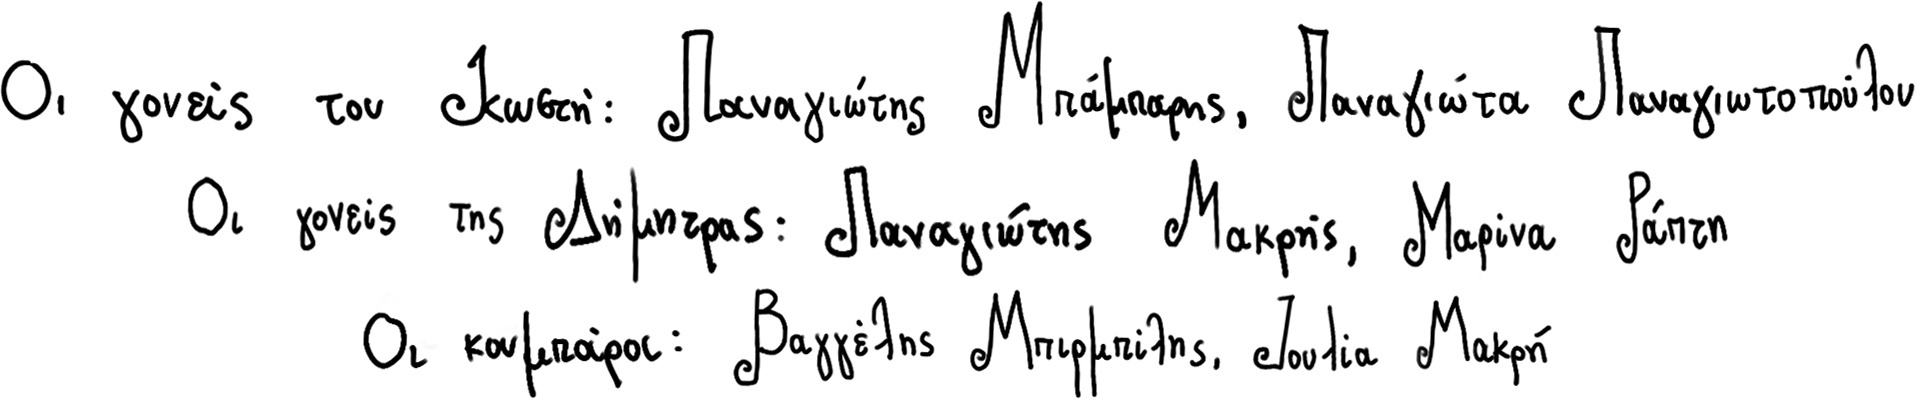 Οι γονείς του Κωστή: Παναγιώτης Μπάμπαρης, Παναγιώτα Παναγιωτοπούλου
Οι γονείς της Δήμητρας: Παναγιώτης Μακρής, Μαρίνα Ράπτη
Οι κουμπάροι: Βαγγέλης Μπιρμπίλης, Ιουλία Μακρή